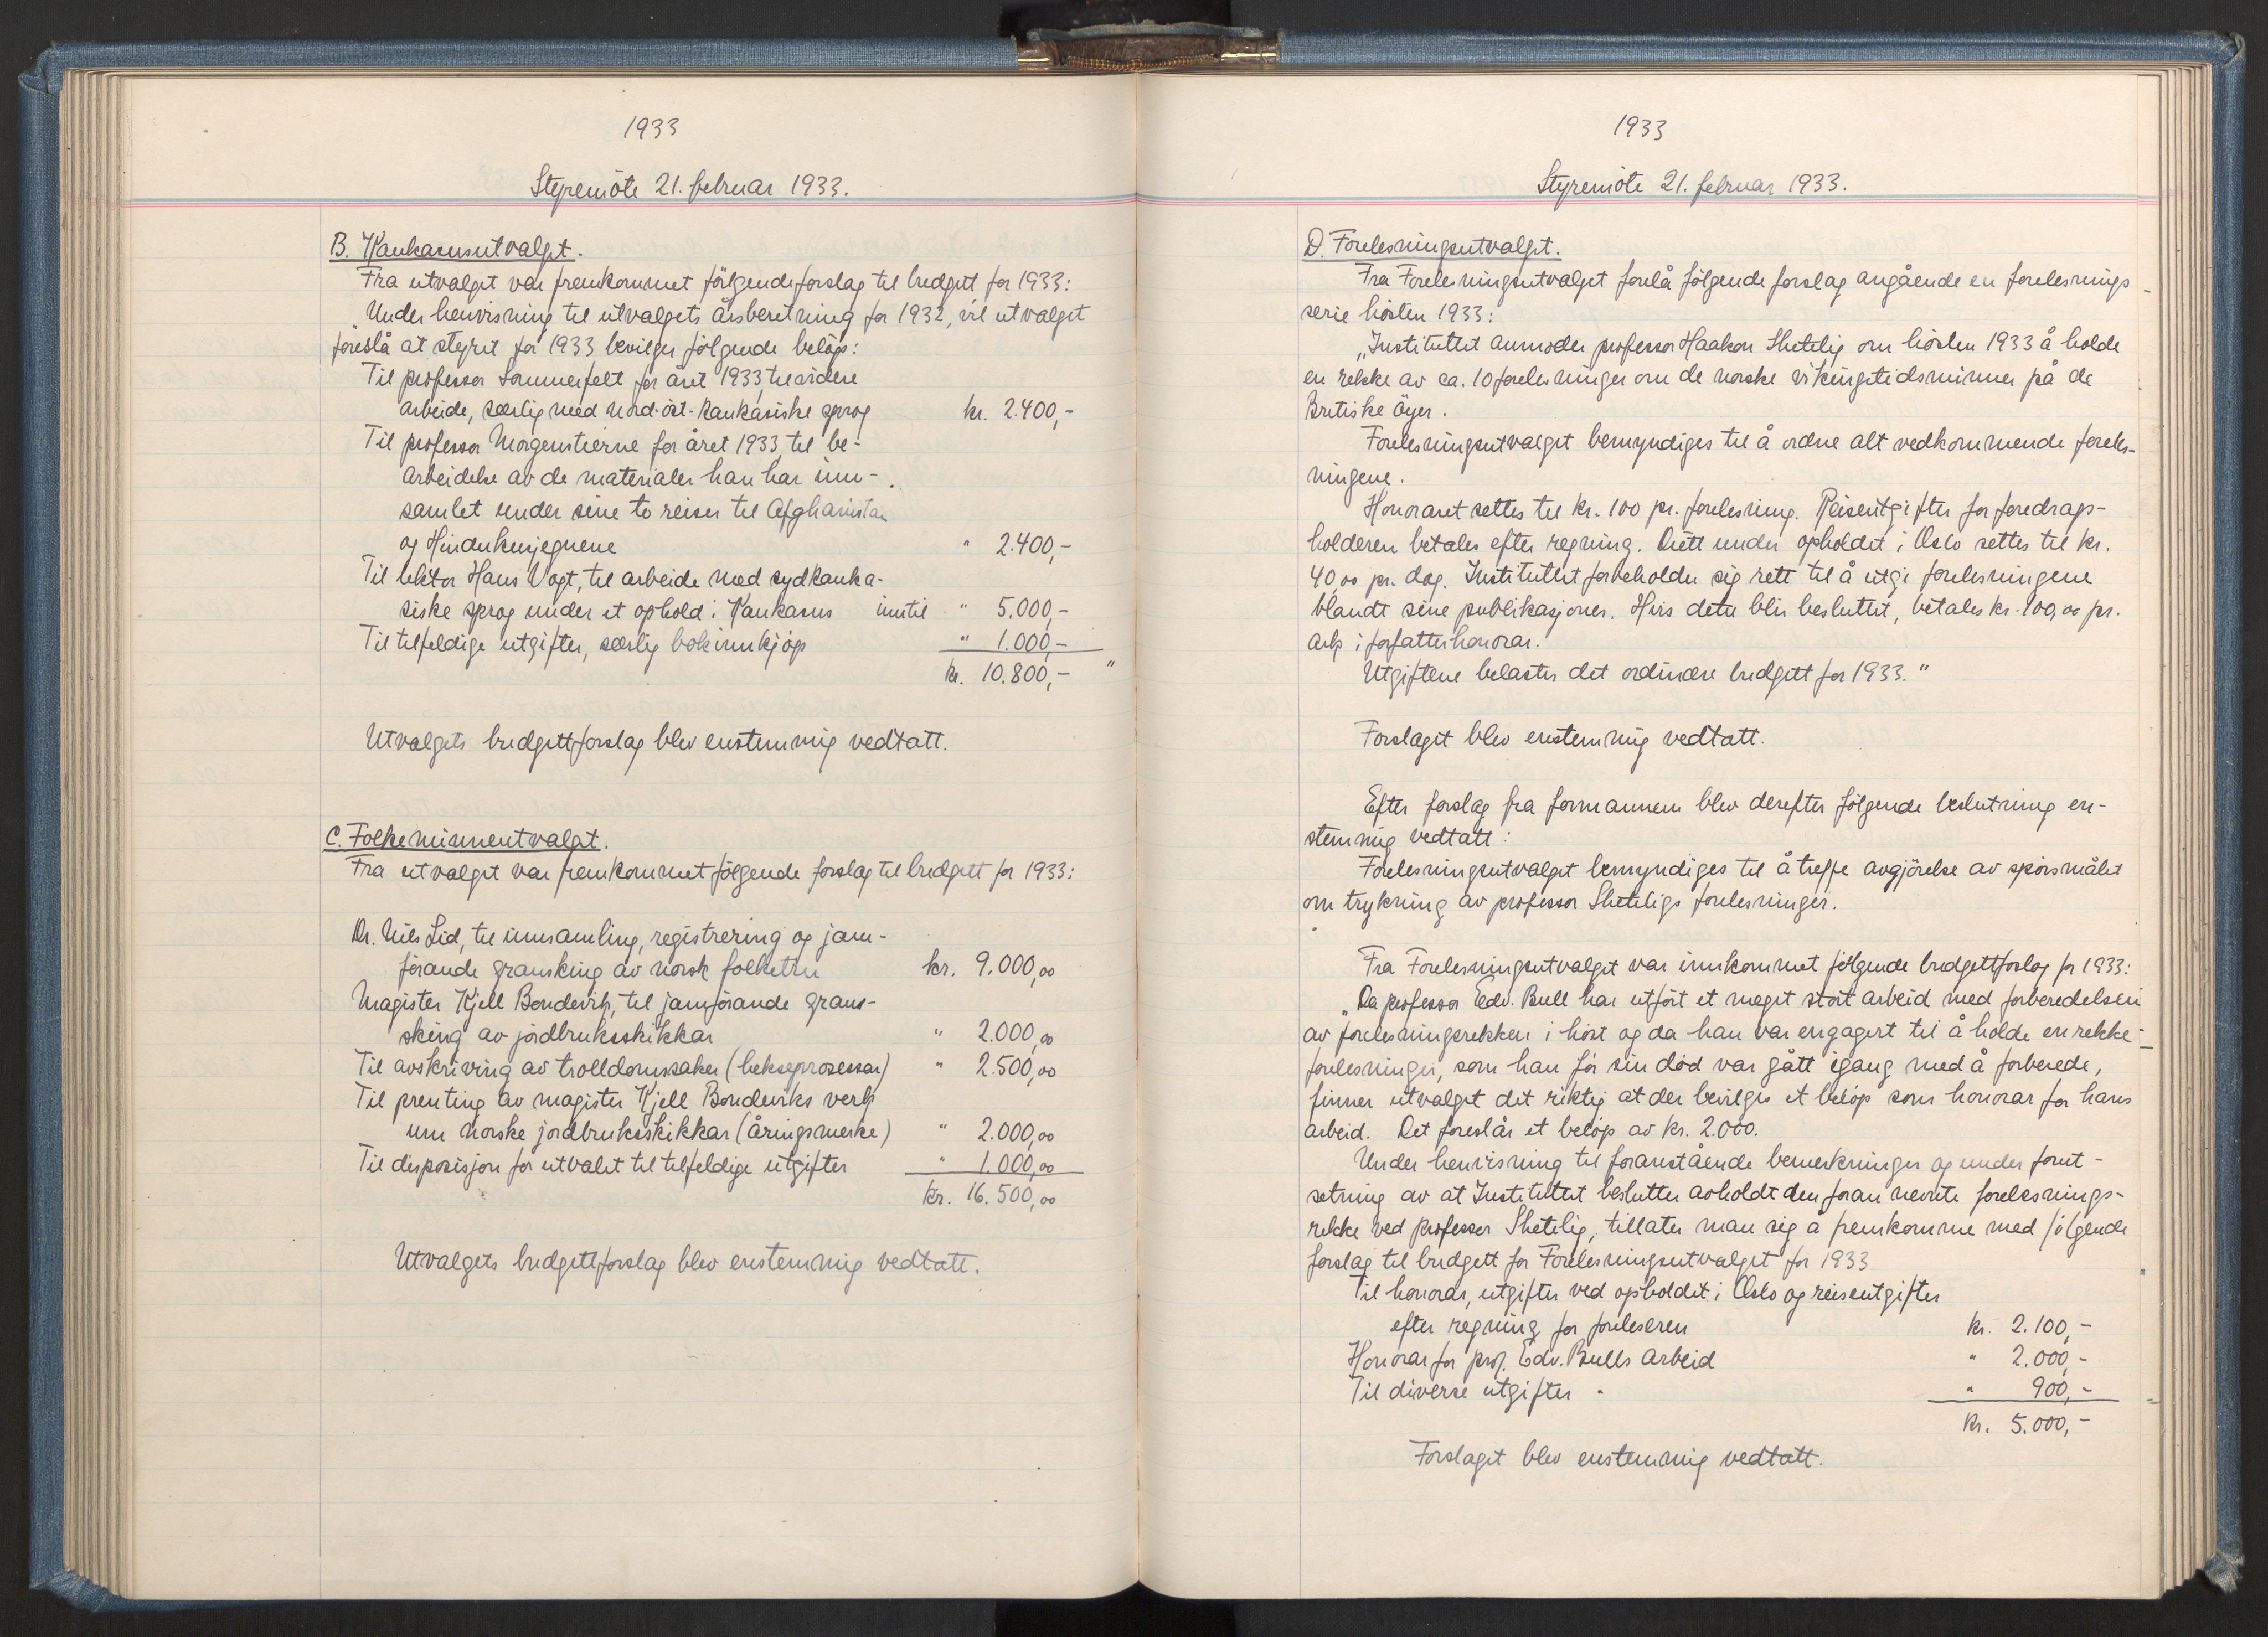 1933
Styremöte 21. februar 1933.
B. Kaukasusutvalget.
Fra utvalget var fremkommet fölgende forslag til budgett for 1933:
„Under henvisning til utvalgets årsberetning for 1932, vil utvalget
foreslå at styret for 1933 bevilger fölgende belöp:
Til professor Sommerfelt for året 1933, til videre
arbeide, særlig med nord-öst-kaukasiske sprog kr. 2.400,-
Til professor Morgenstierne for året 1933, til be-
arbeidelse av de materialer han har inn-
samlet under sine to reiser til Afghanistan
og Hindukusjegnene " 2.400,-
Til lektor Hans Vogt, til arbeide med sydkauka-
siske sprog under et ophold i Kaukasus inntil " 5.000,-
Til tilfeldige utgifter, særlig bokinnkjöp " 1.000,-
kr. 10.800,- "
Utvalgets budgettforslag blev enstemmig vedtatt.
C. Folkeminneutvalget.
Fra utvalget var fremkommet fölgende forslag til budgett for 1933:
Dr. Nils Lid, til innsamling, registrering og jam-
förande gransking av norsk folketru kr. 9.000,00
Magister Kjell Bondevik, til jamförande grans-
sking av jordbruksskikkar " 2.000,00
Til avskriving av trolldomssaker (hekseprosessar) " 2.500,00
Til prenting av magister Kjell Bondeviks verk
um norske jordbruksskikkar (åringsmerke) " 2.000,00
Til disposisjon for utvalet til tilfeldige utgifter " 1.000,00
kr. 16.500,00
Utvalgets budgettforslag blev enstemmig vedtatt.
1933
Styremöte 21. februar 1933.
D. Forelesningsutvalget.
Fra Forelesningsutvalget forelå fölgende forslag angående en forelesnings-
serie hösten 1933:
„Instituttet anmoder professor Haakon Shetelig om hösten 1933 å holde
en rekke av ca. 10 forelesninger om de norske vikingetidsminner på de
Britiske Öyer.
Forelesningsutvalget bemyndiges til å ordne alt vedkommende foreles-
ningene.
Honoraret settes til kr. 100 pr. forelesning. Reiseutgifter for foredrags-
holderen betales efter regning. Diett under opholdet i Oslo settes til kr.
40,00 pr. dag. Instituttet forbeholder sig rett til å utgi forelesningene
blandt sine publikasjoner. Hvis dette blir besluttet, betales kr. 100,00 pr.
ark i forfatterhonorar.
Utgiftene belastes det ordinære budgett for 1933."
Forslaget blev enstemmig vedtatt.
Efter forslag fra formannen blev derefter fölgende beslutning en-
stemmig vedtatt:
Forelesningsutvalget bemyndiges til å treffe avgjörelse av spörsmålet
om trykning av professor Sheteligs forelesninger.
Fra Forelesningsutvalget var innkommet fölgende budgettforslag for 1933:
„Da professor Edv. Bull har utfört et meget stort arbeid med forberedelsen
av forelesningsrekken i höst og da han var engagert til å holde en rekke
forelesninger, som han för sin död var gått igang med å forberede,
finner utvalget det riktig at der bevilges et belöp som honorar for hans
arbeid. Det foreslår et belöp av kr. 2.000.
Under henvisning til foranstående bemerkninger og under forut-
setning av at Instituttet beslutter avholdt den foran nevnte forelesnings-
rekke ved professor Shetelig, tillater man sig å fremkomme med fölgende
forslag til budgett for Forelesningsutvalget for 1933
Til honorar, utgifter ved opholdet i Oslo og reiseutgifter
efter regning for foreleseren kr. 2.100,-
Honorar for prof. Edv. Bulls arbeid " 2.000,-
Til diverse utgifter " 900,-
kr. 5.000,-
Forslaget blev enstemmig vedtatt.